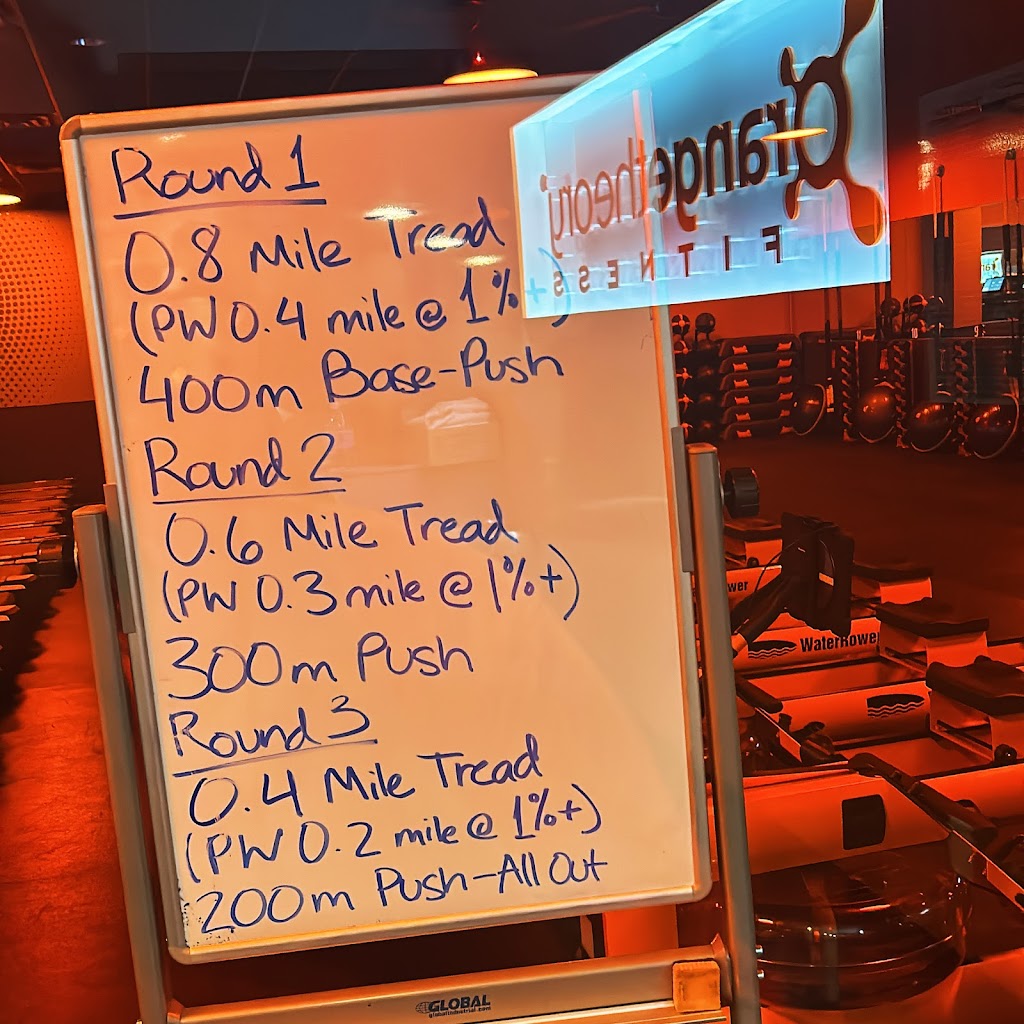 Round 1
0.8 Mile Tread
(PW 0.4 mile @ 1%+)
400m Base-Push
Round 2
0.6 Mile Tread
(PW 0.3 mile @ 1%+)
300m Push
Round 3
0.4 Mile Tread
(PW 0.2 mile @ 1%+)
200m Push-All Out
Orangetheory
FITNESS
WaterRower
GLOBAL
globalindustrial.com